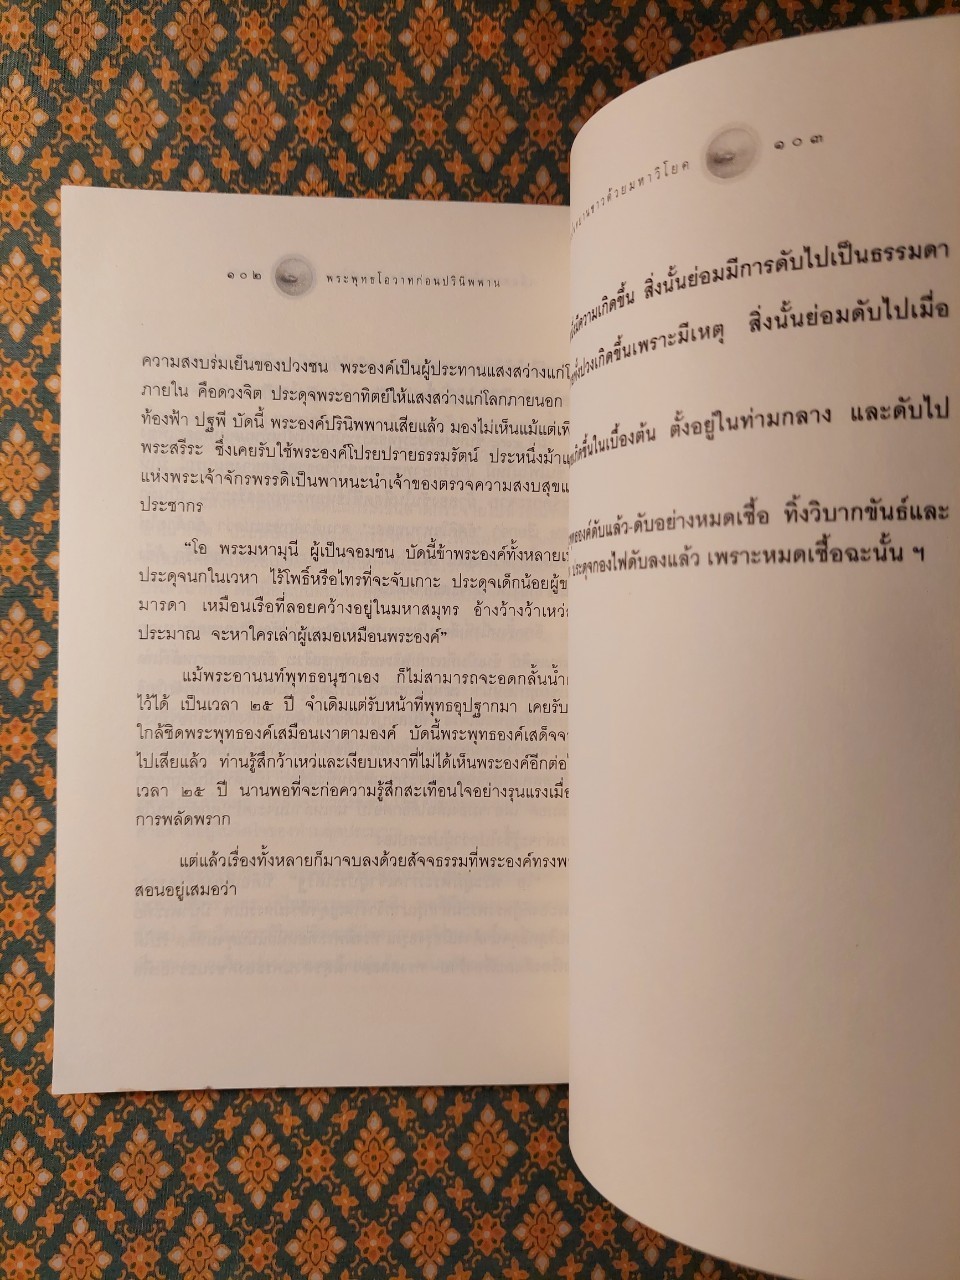 ๑๐๒ พระพุทธโอวาทก่อนปรินิพพาน
ความสงบร่มเย็นของปวงชน พระองค์เป็นผู้ประทานแสงสว่างแก่
ภายใน คือดวงจิต ประดุจพระอาทิตย์ให้แสงสว่างแก่โลกภายนอก
ท้องฟ้า ปฐพี บัดนี้ พระองค์ปรินิพพานเสียแล้ว มองไม่เห็นแม้แต่
พระสรีระ ซึ่งเคยรับใช้พระองค์โปรยปรายธรรมรัตน์ ประหนึ่งม้า
แห่งพระเจ้าจักรพรรดิเป็นพาหนะนำเจ้าของตรวจความสงบสุข
ประชากร
“โอ พระมหามุนี ผู้เป็นจอมชน บัดนี้ข้าพระองค์ทั้งหลาย
ประดุจนกในเวหา ไร้โพธิ์หรือไทรที่จะจับเกาะ ประดุจเด็กน้อยผู้
มารดา เหมือนเรือที่ลอยคว้างอยู่ในมหาสมุทร อ้างว้างว้าเหว่
ประมาณ จะหาใครเล่าผู้เสมอเหมือนพระองค์”
แม้พระอานนท์พุทธอนุชาเอง ก็ไม่สามารถจะอดกลั้นน้ำ
ไว้ได้ เป็นเวลา ๒๕ ปี จำเดิมแต่รับหน้าที่พุทธอุปฐากมา เคยรับ
ใกล้ชิดพระพุทธองค์เสมือนเงาตามองค์ บัดนี้พระพุทธองค์เสด็จ
ไปเสียแล้ว ท่านรู้สึกว้าเหว่และเงียบเหงาที่ไม่ได้เห็นพระองค์อีกต่อ
เวลา ๒๕ ปี นานพอที่จะก่อความรู้สึกสะเทือนใจอย่างรุนแรงเมื่อ
การพลัดพราก
แต่แล้วเรื่องทั้งหลายก็มาจบลงด้วยสัจจธรรมที่พระองค์ทรง
สอนอยู่เสมอว่า
ด้วยมหาวิโยค ๑๐๓
มีความเกิดขึ้น สิ่งนั้นย่อมมีการดับไปเป็นธรรมดา
ปวงเกิดขึ้นเพราะมีเหตุ สิ่งนั้นย่อมดับไปเมื่อ
เกิดขึ้นในเบื้องต้น ตั้งอยู่ในท่ามกลาง และดับไป
องค์ดับแล้ว-ดับอย่างหมดเชื้อ ทิ้งวิบากขันธ์และ
ประดุจกองไฟดับลงแล้ว เพราะหมดเชื้อฉะนั้น ฯ